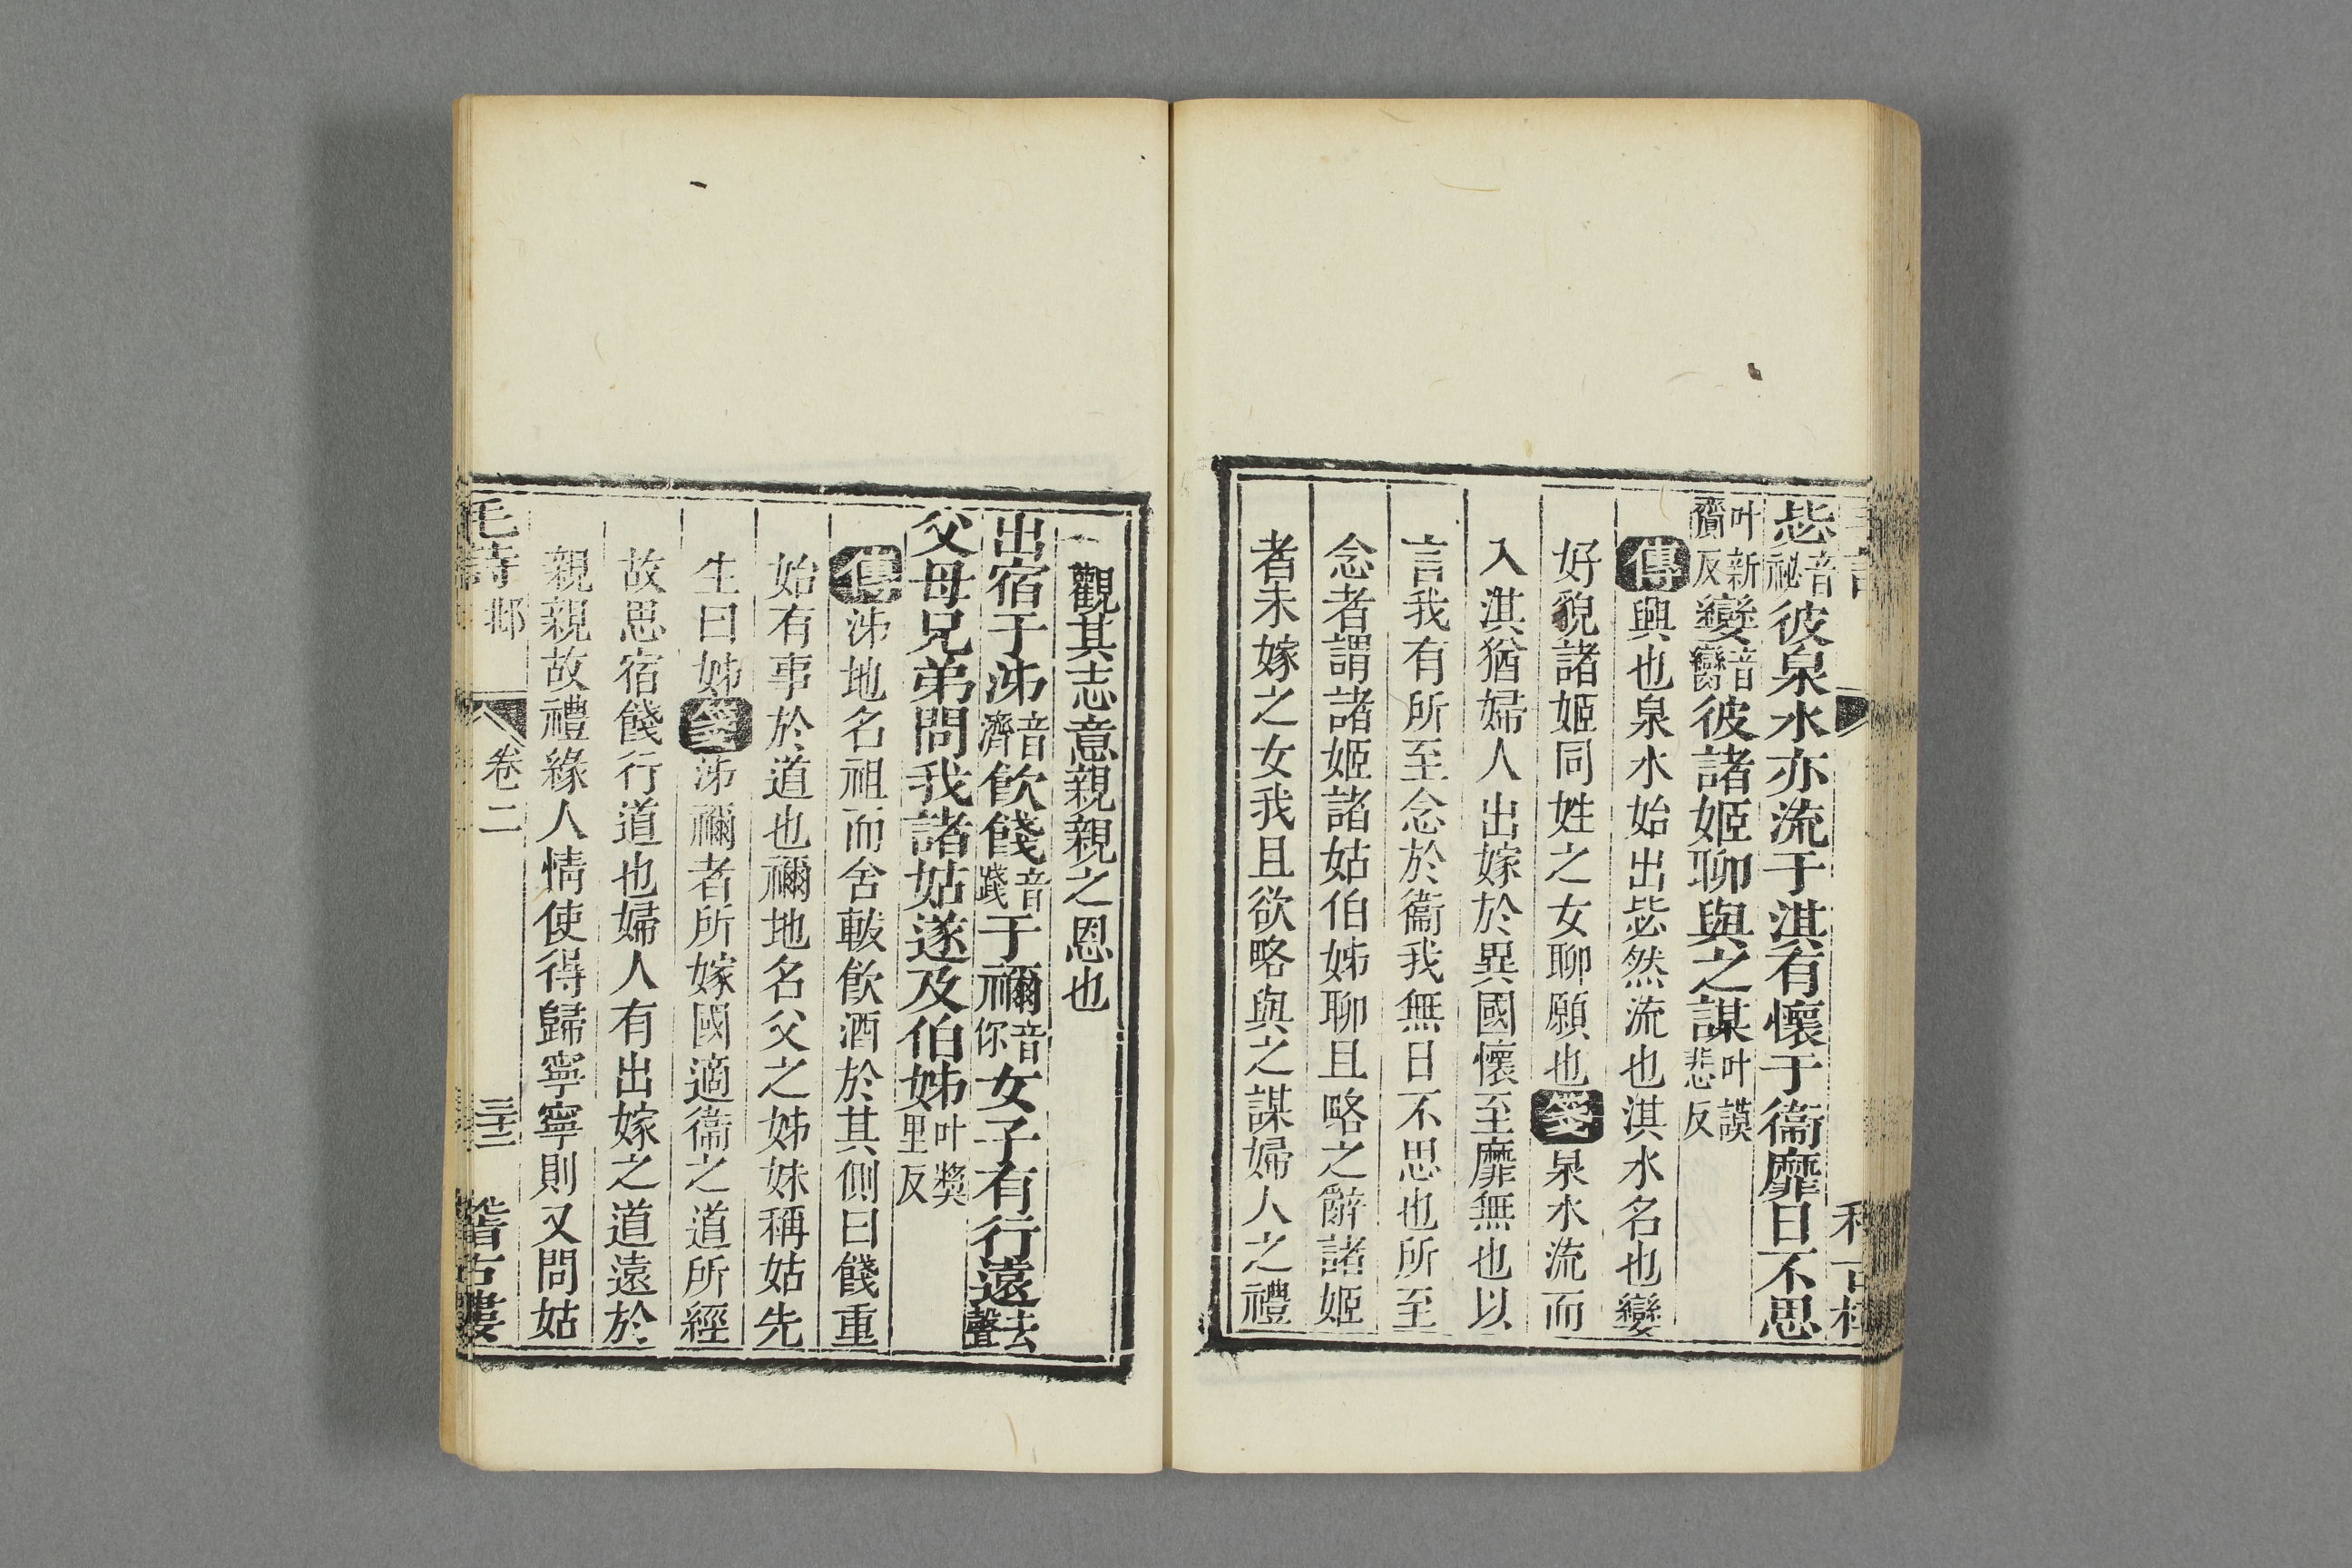 毖音祕彼泉水亦流于淇有懷于衞靡日不思
叶新齎反孌音臠彼諸姬聊與之謀叶謨悲反
傳興也泉水始出毖然流也淇水名也孌
好貌諸姬同姓之女聊願也箋泉水流而
入淇猶婦人出嫁於異國懷至靡無也以
言我有所至念於衞我無日不思也所至
念者謂諸姬諸姑伯姊聊且略之辭諸姬
者未嫁之女我且欲略與之謀婦人之禮
觀其志意親親之恩也
出宿于泲音濟飮餞音踐于禰音你女子有行遠去聲
父母兄弟問我諸姑遂及伯姊叶獎里反
傳泲地名祖而舍軷飮酒於其側曰餞重
始有事於道也禰地名父之姊妹稱姑先
生曰姊箋泲禰者所嫁國適衞之道所經
故思宿餞行道也婦人有出嫁之道遠於
親親故禮緣人情使得歸寧寧則又問姑
毛詩 邶 卷二 三十二 稽古樓